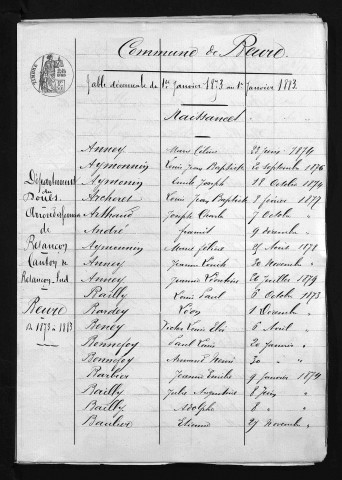 Commune de Beure.
Table décennale du 1er Janvier 1873 au 1er Janvier 1883.
Naissances
Département
du
Doubs
Arrondissement
de
Besançon
Canton de
Besançon Sud
Beure
de 1873 à 1883
Anney Marie Céline 1874
Aymonnin Louis Jean Baptiste 2 Septembre 1876
Aymonin Emile Joseph 18 Octobre 1874
Louis Jean Baptiste 2 février 1877
Arthaud Joseph 7 Octobre "
André 9 "
Aymonnin Marie 21 Août 1878
Anney Jeanne 30 Novembre "
Anney Jeanne 26 Juillet 1879
Bailly Louis Paul 6 Octobre 1873
Bardey Léon 1 Décembre "
Benoy Victor Louis 6 Avril "
Bonnefoy Paul Louis 20 Janvier "
Bonnefoy Armand Henri 30 "
Barbier Jeanne Emilie 9 Janvier 1874
Bailly Jules Augustine 8 Juin "
Bailly Adolphe 8 " "
Baulier Etienne 27 Novembre "